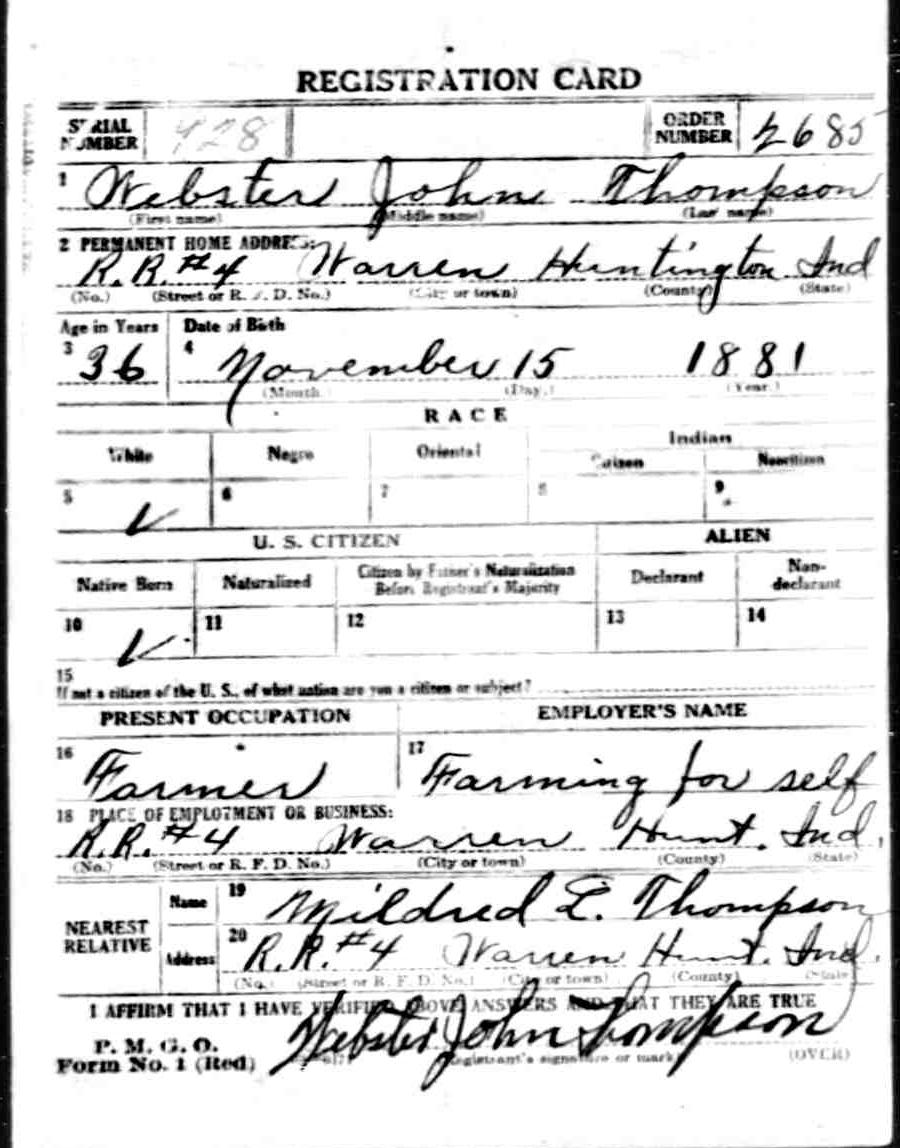 REGISTRATION CARD
SERIAL NUMBER 428 ORDER NUMBER 2685
1 Webster John Thompson
(First name) (Middle name) (Last name)
2 PERMANENT HOME ADDRESS:
R.R. #4 Warren Huntington Ind
(No.) (Street or R. F. D. No.) (City or town) (County) (State)
Age in Years Date of Birth
3 36 4 November 15 1881
(Month.) (Day.) (Year.)
RACE
White Negro Oriental Indian
Citizen Noncitizen
5 ✓ 6 7 8 9
U. S. CITIZEN ALIEN
Native Born Naturalized Citizen by Father's Naturalization Before Registrant's Majority Declarant Non-declarant
10 ✓ 11 12 13 14
15
If not a citizen of the U. S., of what nation are you a citizen or subject?
PRESENT OCCUPATION EMPLOYER'S NAME
16 Farmer 17 Farming for self
18 PLACE OF EMPLOYMENT OR BUSINESS:
R.R. #4 Warren Hunt. Ind.
(No.) (Street or R. F. D. No.) (City or town) (County) (State)
NEAREST RELATIVE
Name 19 Mildred L. Thompson
Address 20 R.R. #4 Warren Hunt. Ind.
(No.) (Street or R. F. D. No.) (City or town) (County) (State)
I AFFIRM THAT I HAVE VERIFIED ABOVE ANSWERS AND THAT THEY ARE TRUE
P. M. G. O.
Form No. 1 (Red) Webster John Thompson
(Registrant's signature or mark) (OVER)